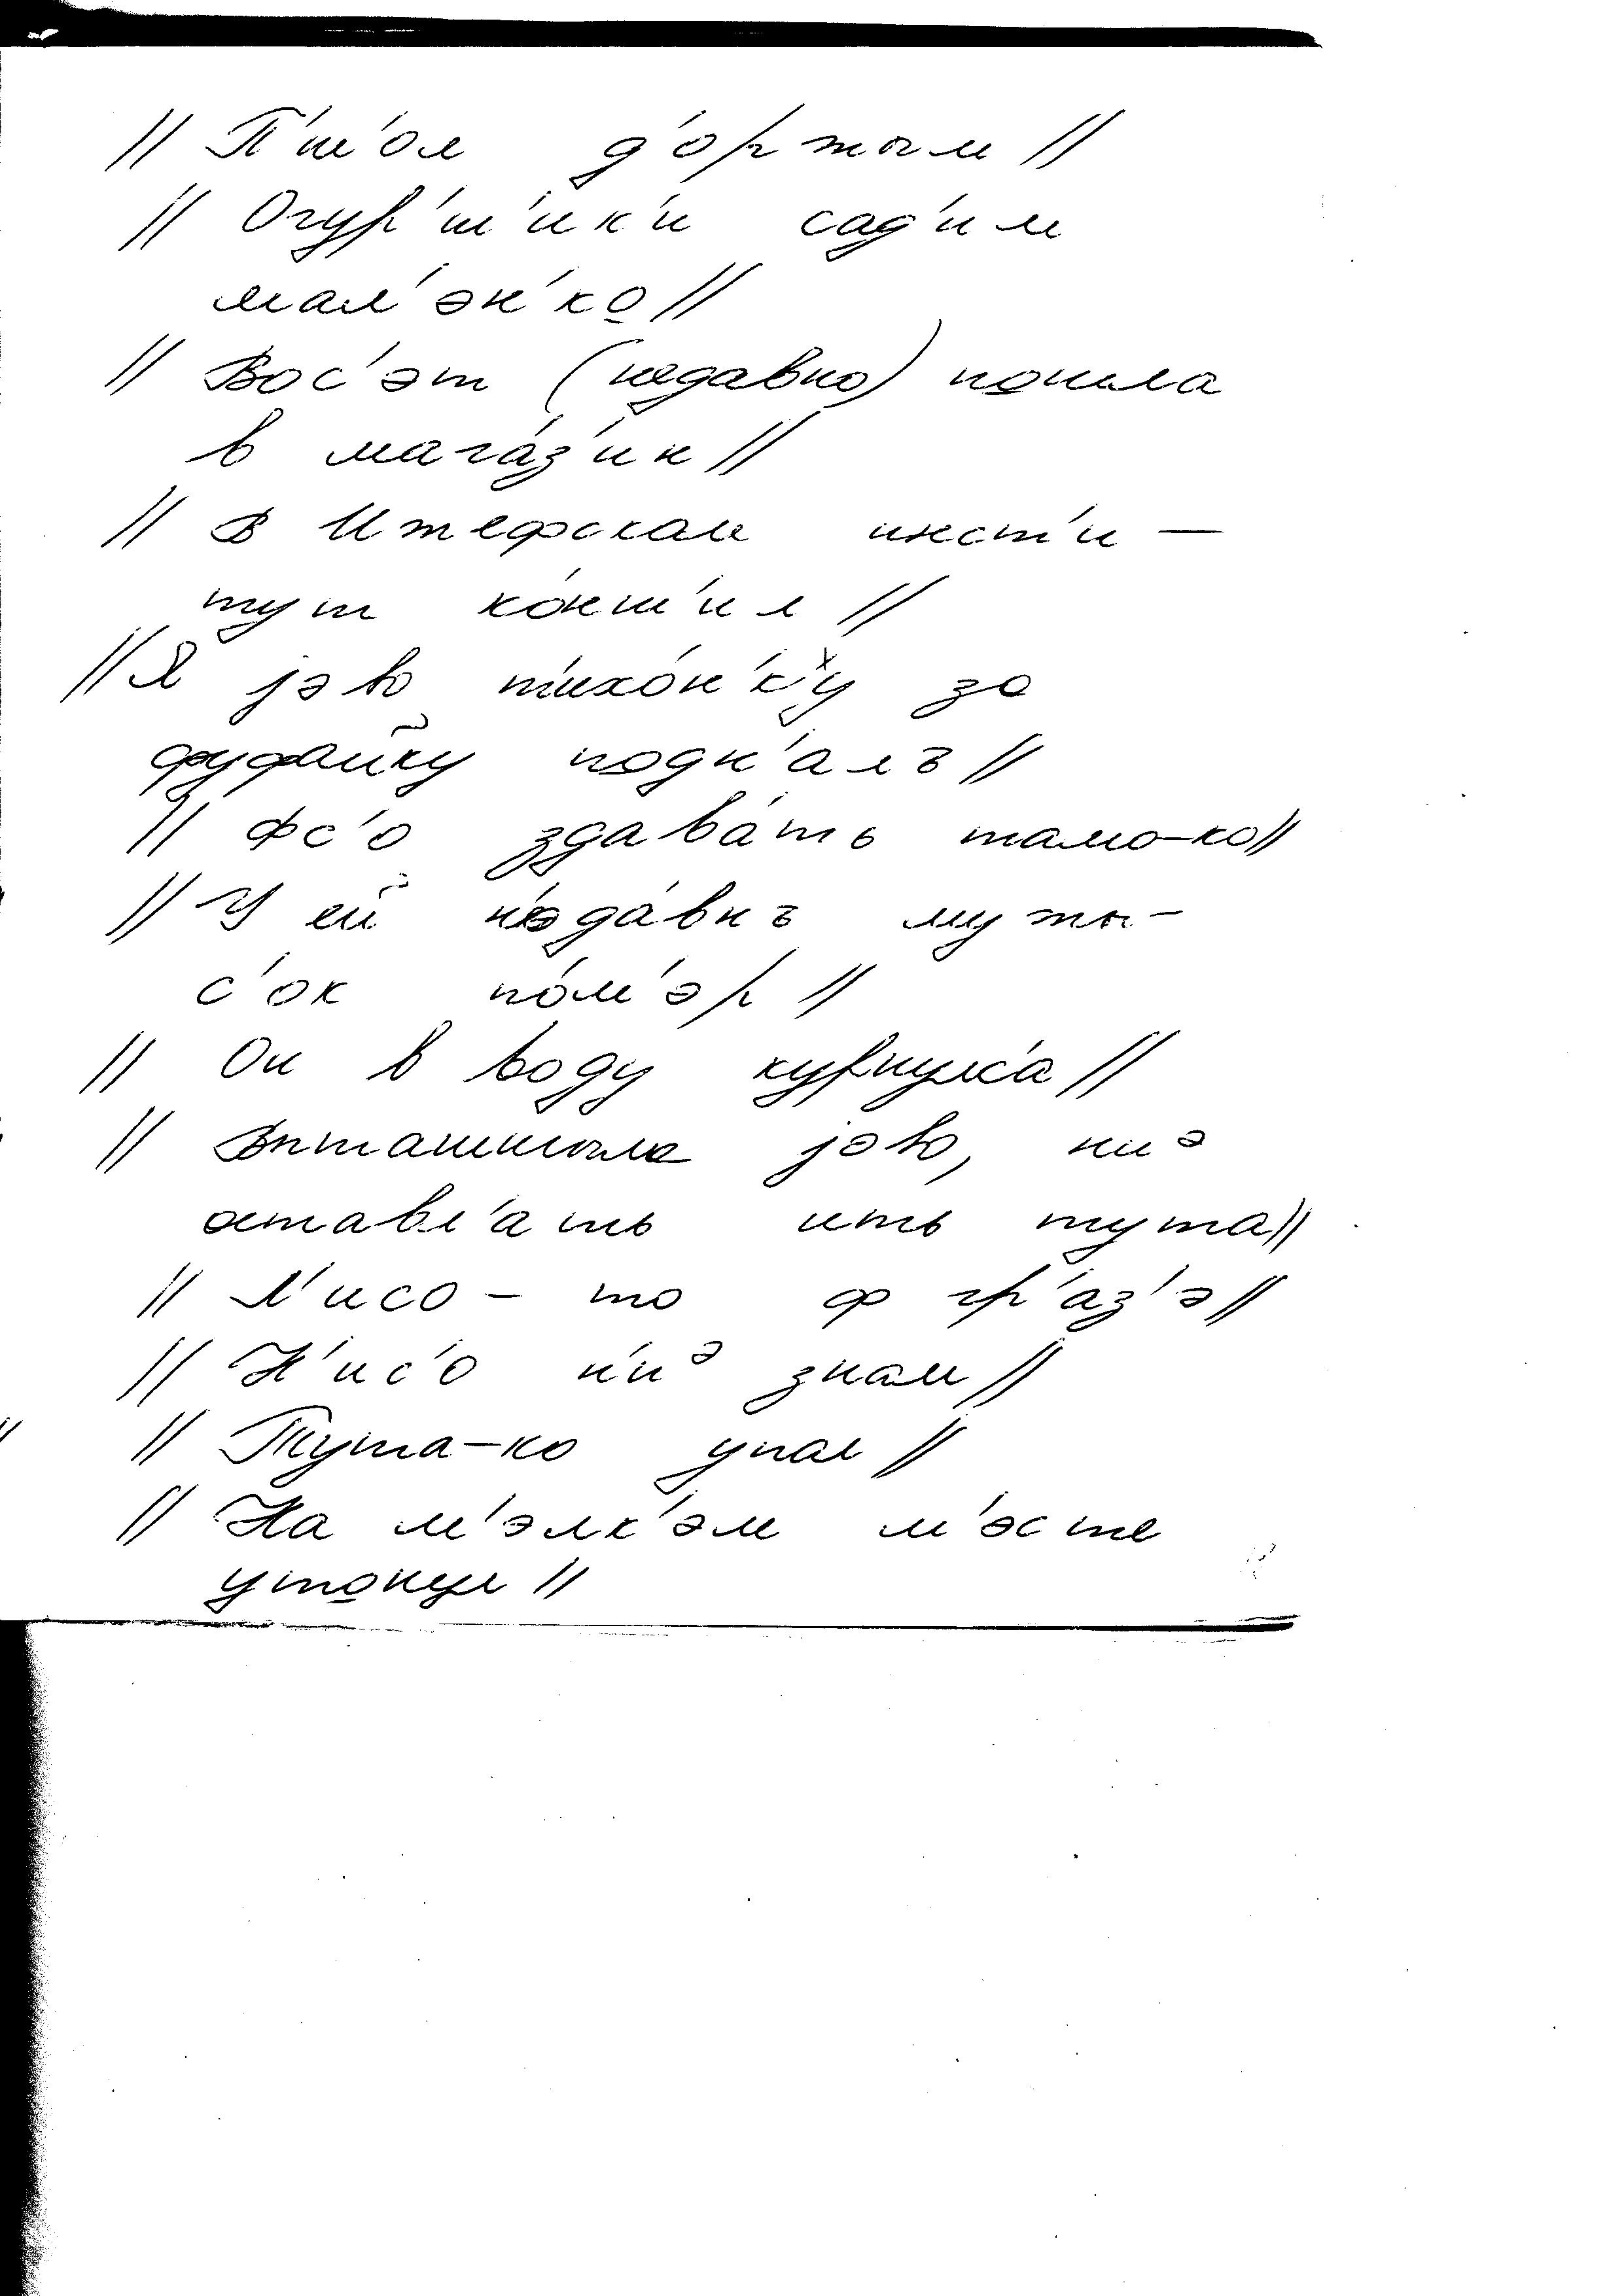 // П'ш'ол д'оржым //
// Огур'ш'ик'и сад'им
мал'эн'ко //
// Вос'эт (недавно) пошла
в мага́з'ин //
// В Ижефскам инст'и –
тут ко́нш'ил //
// Я јэво т'ихо́н'к'у за
фуфайку подн'алъ //
// Фс'о здава́ть тамо-ко //
// У ей н'эда́внъ мужы-
с'ок по́м'эр //
// Он в воду курнулс'а //
// Выташшыла јэво, ниэ
оставл'ать ить тута //
// Л'исо – то ф гр'аз'э //
// Н'ис'о н'иэ знам //
// Тута-ко упал //
// На м'элк'эм м'эсте
утонул //